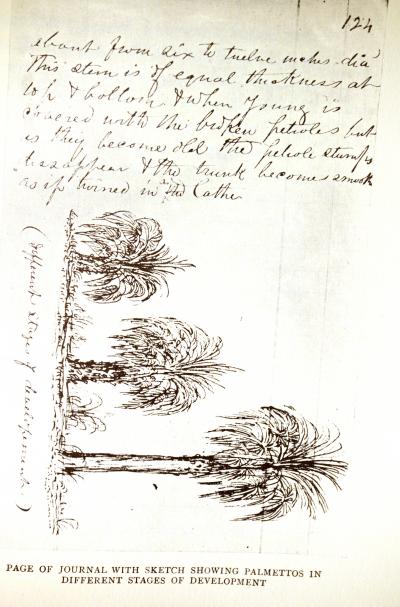 124
about from six to twelve inches dia
This stem is of equal thickness at
top & bottom & when young is
covered with the broken petioles but
as they become old the petiole stumps
dissappear & the trunk becomes smooth
as if turned in a Lathe
(different stages of development.)
PAGE OF JOURNAL WITH SKETCH SHOWING PALMETTOS IN
DIFFERENT STAGES OF DEVELOPMENT